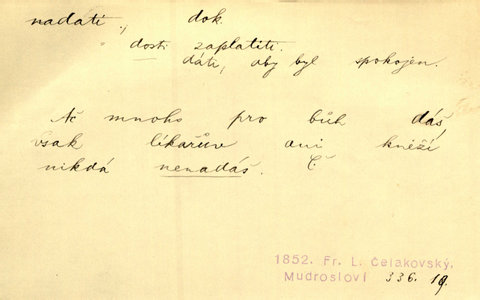 nadati. dok.
dosti zaplatiti.
dáti, aby byl spokojen.
Ač mnoho pro bůh dáš,
však lékařův ani kněží
nikdá nenadáš. Č
1852. Fr. L. Čelakovský.
Mudrosloví 336. 19.